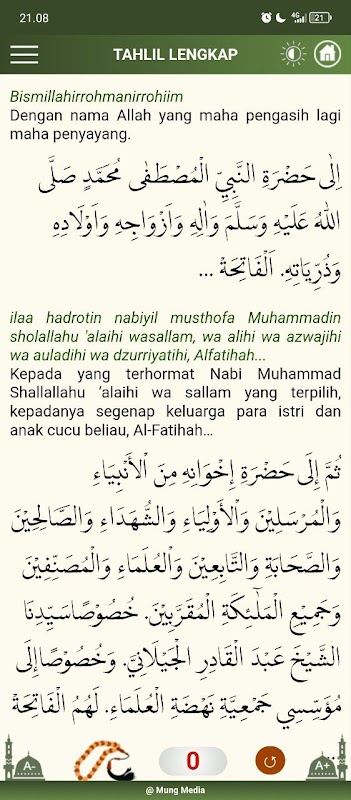 21.08
4G
21
TAHLIL LENGKAP
Bismillahirrohmanirrohiim
Dengan nama Allah yang maha pengasih lagi
maha penyayang.
اِلٰى حَضْرَةِ النَّبِيِّ الْمُصْطَفٰى مُحَمَّدٍ صَلَّى
اللهُ عَلَيْهِ وَسَلَّمَ وَاٰلِهِ وَاَزْوَاجِهِ وَاَوْلَادِهِ
وَذُرِّيَاتِهِ. اَلْفَاتِحَةْ ...
ilaa hadrotin nabiyil musthofa Muhammadin
sholallahu 'alaihi wasallam, wa alihi wa azwajihi
wa auladihi wa dzurriyatihi, Alfatihah...
Kepada yang terhormat Nabi Muhammad
Shallallahu 'alaihi wa sallam yang terpilih,
kepadanya segenap keluarga para istri dan
anak cucu beliau, Al-Fatihah...
ثُمَّ إِلَى حَضْرَةِ إِخْوَانِهِ مِنَ اْلأَنْبِيَاءِ
وَالْمُرْسَلِيْنَ وَاْلأَوْلِيَاءِ وَالشُّهَدَاءِ وَالصَّالِحِيْنَ
وَالصَّحَابَةِ وَالتَّابِعِيْنَ وَاْلعُلَمَاءِ وَالْمُصَنِّفِيْنَ
وَجَمِيْعِ الْمَلَٰٓئِكَةِ الْمُقَرَّبِيْنَ. خُصُوْصًا سَيِّدِنَا
الشَّيْخِ عَبْدِ الْقَادِرِ الْجَيْلَانِيِّ. وَخُصُوْصًا إِلَى
مُؤَسِّسِي جَمْعِيَّةِ نَهْضَةِ الْعُلَمَاءِ. لَهُمُ الْفَاتِحَةْ
A-
0
A+
@ Mung Media